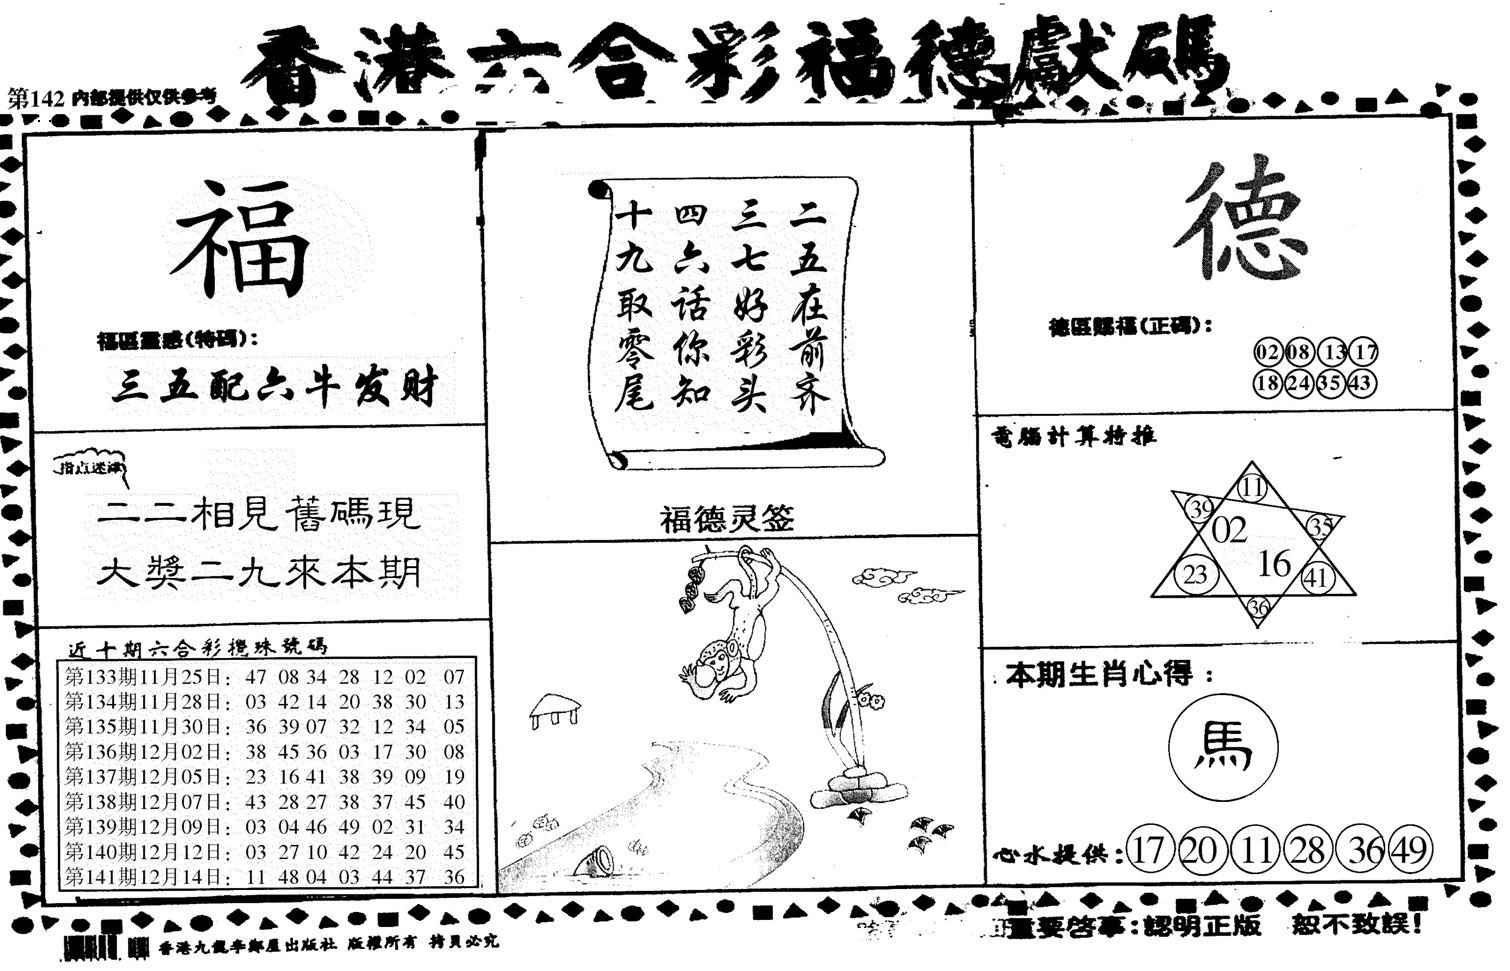 香港六合彩福德獻碼
第142 内部提供仅供参考
福
福區靈感(特碼):
三五配六牛发财
指点迷津
二二相見舊碼現
大獎二九來本期
近十期六合彩攪珠號碼
第133期11月25日: 47 08 34 28 12 02 07
第134期11月28日: 03 42 14 20 38 30 13
第135期11月30日: 36 39 07 32 12 34 05
第136期12月02日: 38 45 36 03 17 30 08
第137期12月05日: 23 16 41 38 39 09 19
第138期12月07日: 43 28 27 38 37 45 40
第139期12月09日: 03 04 46 49 02 31 34
第140期12月12日: 03 27 10 42 24 20 45
第141期12月14日: 11 48 04 03 44 37 36
二五在前齐
三七好彩头
四六话你知
十九取零尾
福德灵签
德
德區賜福(正碼):
02 08 13 17
18 24 35 43
電腦計算特推
11
39
02
35
16
23
41
36
本期生肖心得:
馬
心水提供:17 20 11 28 36 49
香港九龍李鄭屋出版社 版權所有 拷貝必究
重要啓事:認明正版 恕不致誤!